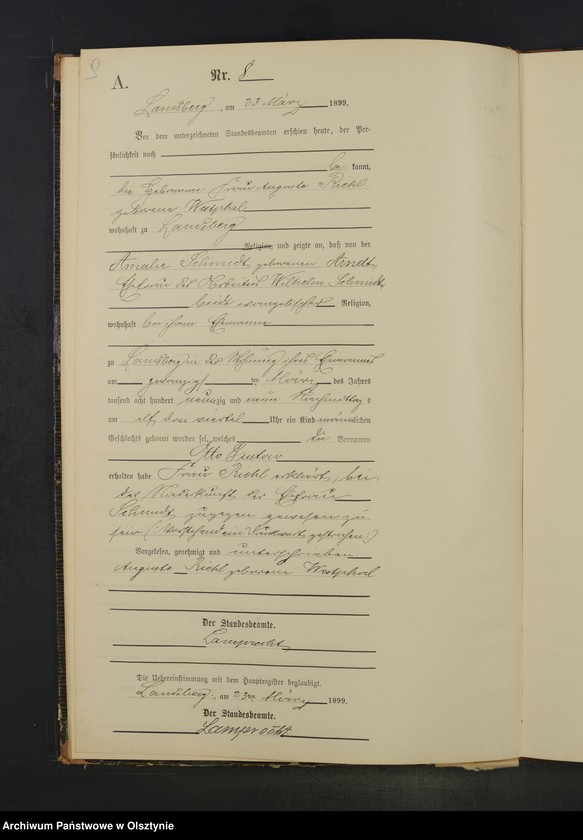 9
A.
Nr. 8
Landsberg, am 23 März 1899.
Vor dem unterzeichneten Standesbeamten erschien heute, der Per-
sönlichkeit nach
be kannt,
die Hebamme Frau Auguste Riehl
geborene Westphal
wohnhaft zu Landsberg
Religion, und zeigte an, daß von der
Amalie Schmidt geborenen Arndt,
Ehefrau des Arbeiters Wilhelm Schmidt,
beide evangelischer Religion,
wohnhaft bei ihrem Ehemanne
zu Landsberg in der Wohnung ihres Ehemannes
am zwanzigsten März des Jahres
tausend acht hundert neunzig und neun Nachmittags
um elf drei viertel Uhr ein Kind männlichen
Geschlechts geboren worden sei, welches die Vornamen
Otto Gustav
erhalten habe Frau Riehl erklärt, bei
der Niederkunft der Ehefrau
Schmidt zugegen gewesen zu
sein (: Vorstehend ein Druckwort gestrichen:)
Vorgelesen, genehmigt und unterschrieben
Auguste Riehl geborene Westphal
Der Standesbeamte.
Lamprecht
Die Uebereinstimmung mit dem Hauptregister beglaubigt.
Landsberg, am 23ten März 1899.
Der Standesbeamte.
Lamprecht
Archiwum Państwowe w Olsztynie